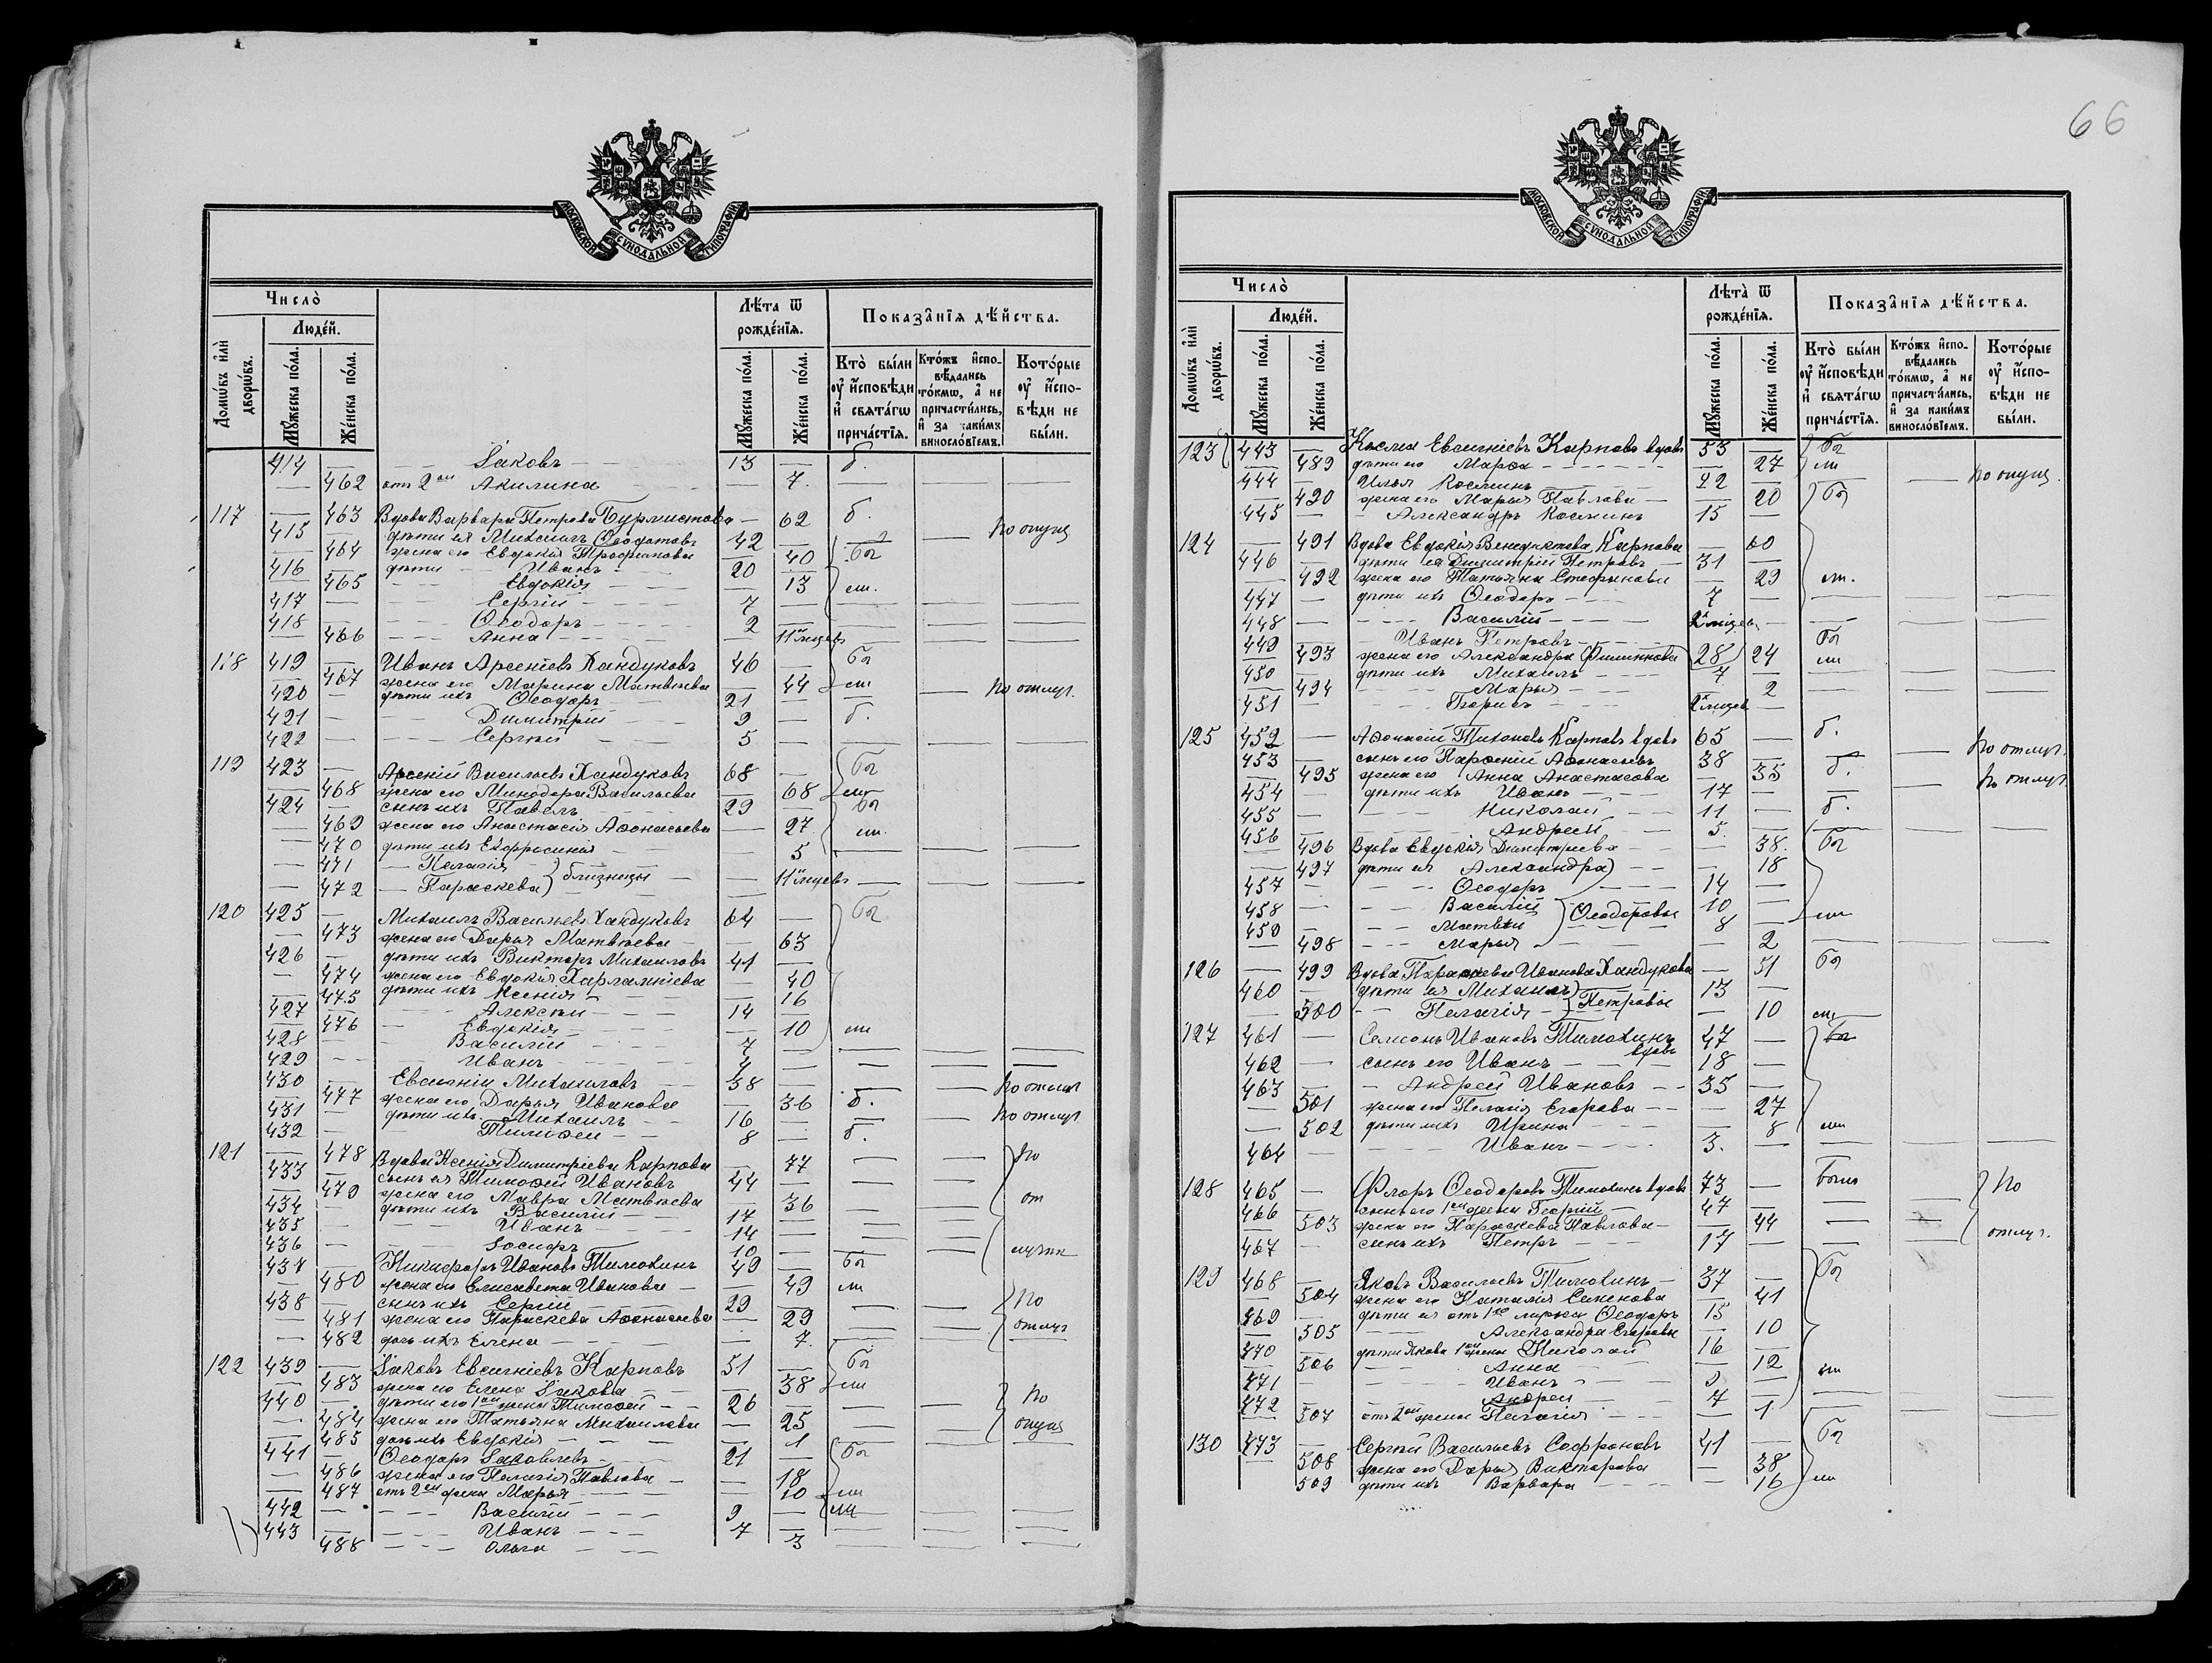 66
МОСКОВСКОЙ СѴНОДАЛЬНОЙ ТИПОГРАФІИ
Число̀
Людéй.
Домѡ́въ и҆лѝ дворѡ́въ.
Мꙋ́жеска по́ла.
Же́нска по́ла.
Лѣ́та ѿ рождéнїѧ.
Мꙋ́жеска по́ла.
Же́нска по́ла.
Показа̂нїѧ дѣ́йства.
Кто̀ бы́ли оу҆ и҆́сповѣди и҆ свѧта́гѡ прича́стїѧ.
Кто́жъ и҆спо-вѣ́дались то́кмѡ, а҆ не причасти́лись, и҆ за каки́мъ винослові́емъ.
Кото́рые оу҆ и҆́спо-вѣди не бы́ли.
414 — Іаковъ 13 — б.
— 462 отъ 2ой Акилина — 7.
117 — 463 Вдова Варвара Петрова Бурмистова — 62 б.
415 — дѣти ея Михаилъ Ѳеодотовъ 42 — по опущ
— 464 жена его Евдокія Трофимова — 40 бы
416 — дѣти Иванъ 20 —
— 465 Евдокія — 13 ли.
417 — Сергій 7 —
418 — Ѳеодоръ 2 —
— 466 Анна — 11 мцевъ
118 419 — Иванъ Арсеніевъ Хандуковъ 46 — бы
— 467 жена его Марина Матвѣева — 44 ли
420 — дѣти ихъ Ѳеодоръ 21 — по отлуч.
421 — Димитрій 9 — б.
422 — Сергѣй 5 —
119 423 — Арсеній Васильевъ Хандуковъ 68 — бы
— 468 жена его Минодора Васильева — 68 ли
424 — сынъ ихъ Павелъ 29 — бы
— 469 жена его Анастасія Аѳонасьева — 27. ли.
— 470 дѣти ихъ Евфросинія — 5
— 471 Пелагія близнецы
— 472 Параскева — 11 мцевъ
120 425 — Михаилъ Васильевъ Хандуковъ 64 — бы
— 473 жена его Дарья Матвѣева — 63
426 — дѣти ихъ Викторъ Михаиловъ 41 —
— 474 жена его Евдокія Харлампіева — 40
— 475 дѣти ихъ Ксенія — 16
427 — Алексѣй 14 —
— 476 Евдокія — 10 ли
428 — Василій 7 —
429 — Иванъ 4 —
430 — Евгеній Михаиловъ 38 — по отлуч
— 477 жена его Дарья Ивановна — 36 б.
431 — дѣти ихъ Михаилъ 16 — по отлуч
432 — Тимоѳей 8 — б.
121 — 478 Вдова Ксенія Димитріева Карпова — 77 по
433 — сынъ ея Тимоѳей Ивановъ 44 —
— 479 жена его Мавра Матвѣева — 36 от
434 — дѣти ихъ Василій 17 —
435 — Иванъ 14 —
436 — Іосифъ 10 — лучки
437 — Никифоръ Ивановъ Тимохинъ 49 — бы
— 480 жена его Елисавета Ивановна — 49 ли
438 — сынъ ихъ Сергій 29 — по
— 481 жена его Параскева Аѳонасьева — 29 отлуч
— 482 дочь ихъ Елена — 7.
122 439 — Іаковъ Евсигніевъ Карповъ 51 — бы
— 483 жена его Елена Іакова — 38 ли
440 — дѣти его 1ой жены Тимоѳей 26 — по
— 484 жена его Татьяна Михаилова — 25 опущ
— 485 дочь ихъ Евдокія — 1
441 — Ѳеодоръ Іаковлевъ 21 — бы
— 486 жена его Пелагія Павлова — 18
— 487 отъ 2ой жены Марья — 10 ли
442 — Василій 9 — ли
443 — Иванъ 7 —
— 488 Ольга — 3
Число̀
Людéй.
Домѡ́въ и҆лѝ дворѡ́въ.
Мꙋ́жеска по́ла.
Же́нска по́ла.
Лѣ́та ѿ рождéнїѧ.
Мꙋ́жеска по́ла.
Же́нска по́ла.
Показа̂нїѧ дѣ́йства.
Кто̀ бы́ли оу҆ и҆́сповѣди и҆ свѧта́гѡ прича́стїѧ.
Кто́жъ и҆спо-вѣ́дались то́кмѡ, а҆ не причасти́лись, и҆ за каки́мъ винослові́емъ.
Кото́рые оу҆ и҆́спо-вѣди не бы́ли.
123 443 — Косма Евсигніевъ Карповъ вдовъ 53 — бы
— 489 дѣти его Марѳа — 27 ли
444 — Илья Косминъ 22 — по опущ.
— 490 жена его Марья Павлова — 20 бы
445 — Александръ Косминъ 15 —
124 — 491 Вдова Евдокія Венедиктова Карпова — 60
446 — дѣти ея Димитрій Петровъ 31 —
— 492 жена его Татьяна Стефанова — 29 ли.
447 — дѣти ихъ Ѳеодоръ 7 —
448 — Василій 2 мцев —
449 — Иванъ Петровъ 28 — бы
— 493 жена его Александра Филиппова — 24 ли
450 — дѣти ихъ Михаилъ 7 —
— 494 Марья — 2
451 — Борисъ 2 мцев —
125 452 — Аѳонасій Тихоновъ Карповъ вдовъ 65 — б.
453 — сынъ его Парѳеній Аѳонасьевъ 38 — по отлуч.
— 495 жена его Анна Анастасова — 35 б.
454 — дѣти ихъ Иванъ 17 — по отлуч
455 — Николай 11 — б.
456 — Андрей 5. —
— 496 Вдова Евдокія Димитріева — 38. бы
— 497 дѣти ея Александра — 18
457 — Ѳеодоръ 14 —
458 — Василій Ѳеодоровы 10 —
459 — Матвѣй 8 — ли
— 498 Марья — 2
126 — 499 Вдова Параскева Иванова Хандукова — 51 бы
460 — дѣти ея Михаилъ 13 —
— 500 Пелагія Петровы — 10 ли
127 461 — Самсонъ Ивановъ Тимохинъ вдовъ 47 — бы
462 — сынъ его Иванъ 18 —
463 — Андрей Ивановъ 35 —
— 501 жена его Пелагія Егорова — 27
— 502 дѣти ихъ Ирина — 8 ли
464 — Иванъ 3. —
128 465 — Флоръ Ѳеодоровъ Тимохинъ вдовъ 73 — были
466 — сынъ его 1ой жены Георгій 47 — по
— 503 жена его Параскева Павлова — 44
467 — сынъ ихъ Петръ 17 — отлуч.
129 468 — Яковъ Васильевъ Тимохинъ 37 — бы
— 504 жена его Наталія Семенова — 41
469 — дѣти ея отъ 1го мужа Ѳеодоръ 15 —
— 505 Александра Егоровы — 10
470 — дѣти Якова 1ой жены Николай 16 —
— 506 Анна — 12
471 — Иванъ 9 — ли
472 — Андрей 7 —
— 507 отъ 2ой жены Пелагія — 1
130 473 — Сергѣй Васильевъ Софроновъ 41 — бы
— 508 жена его Дарья Викторова — 38
— 509 дѣти ихъ Варвара — 16 ли